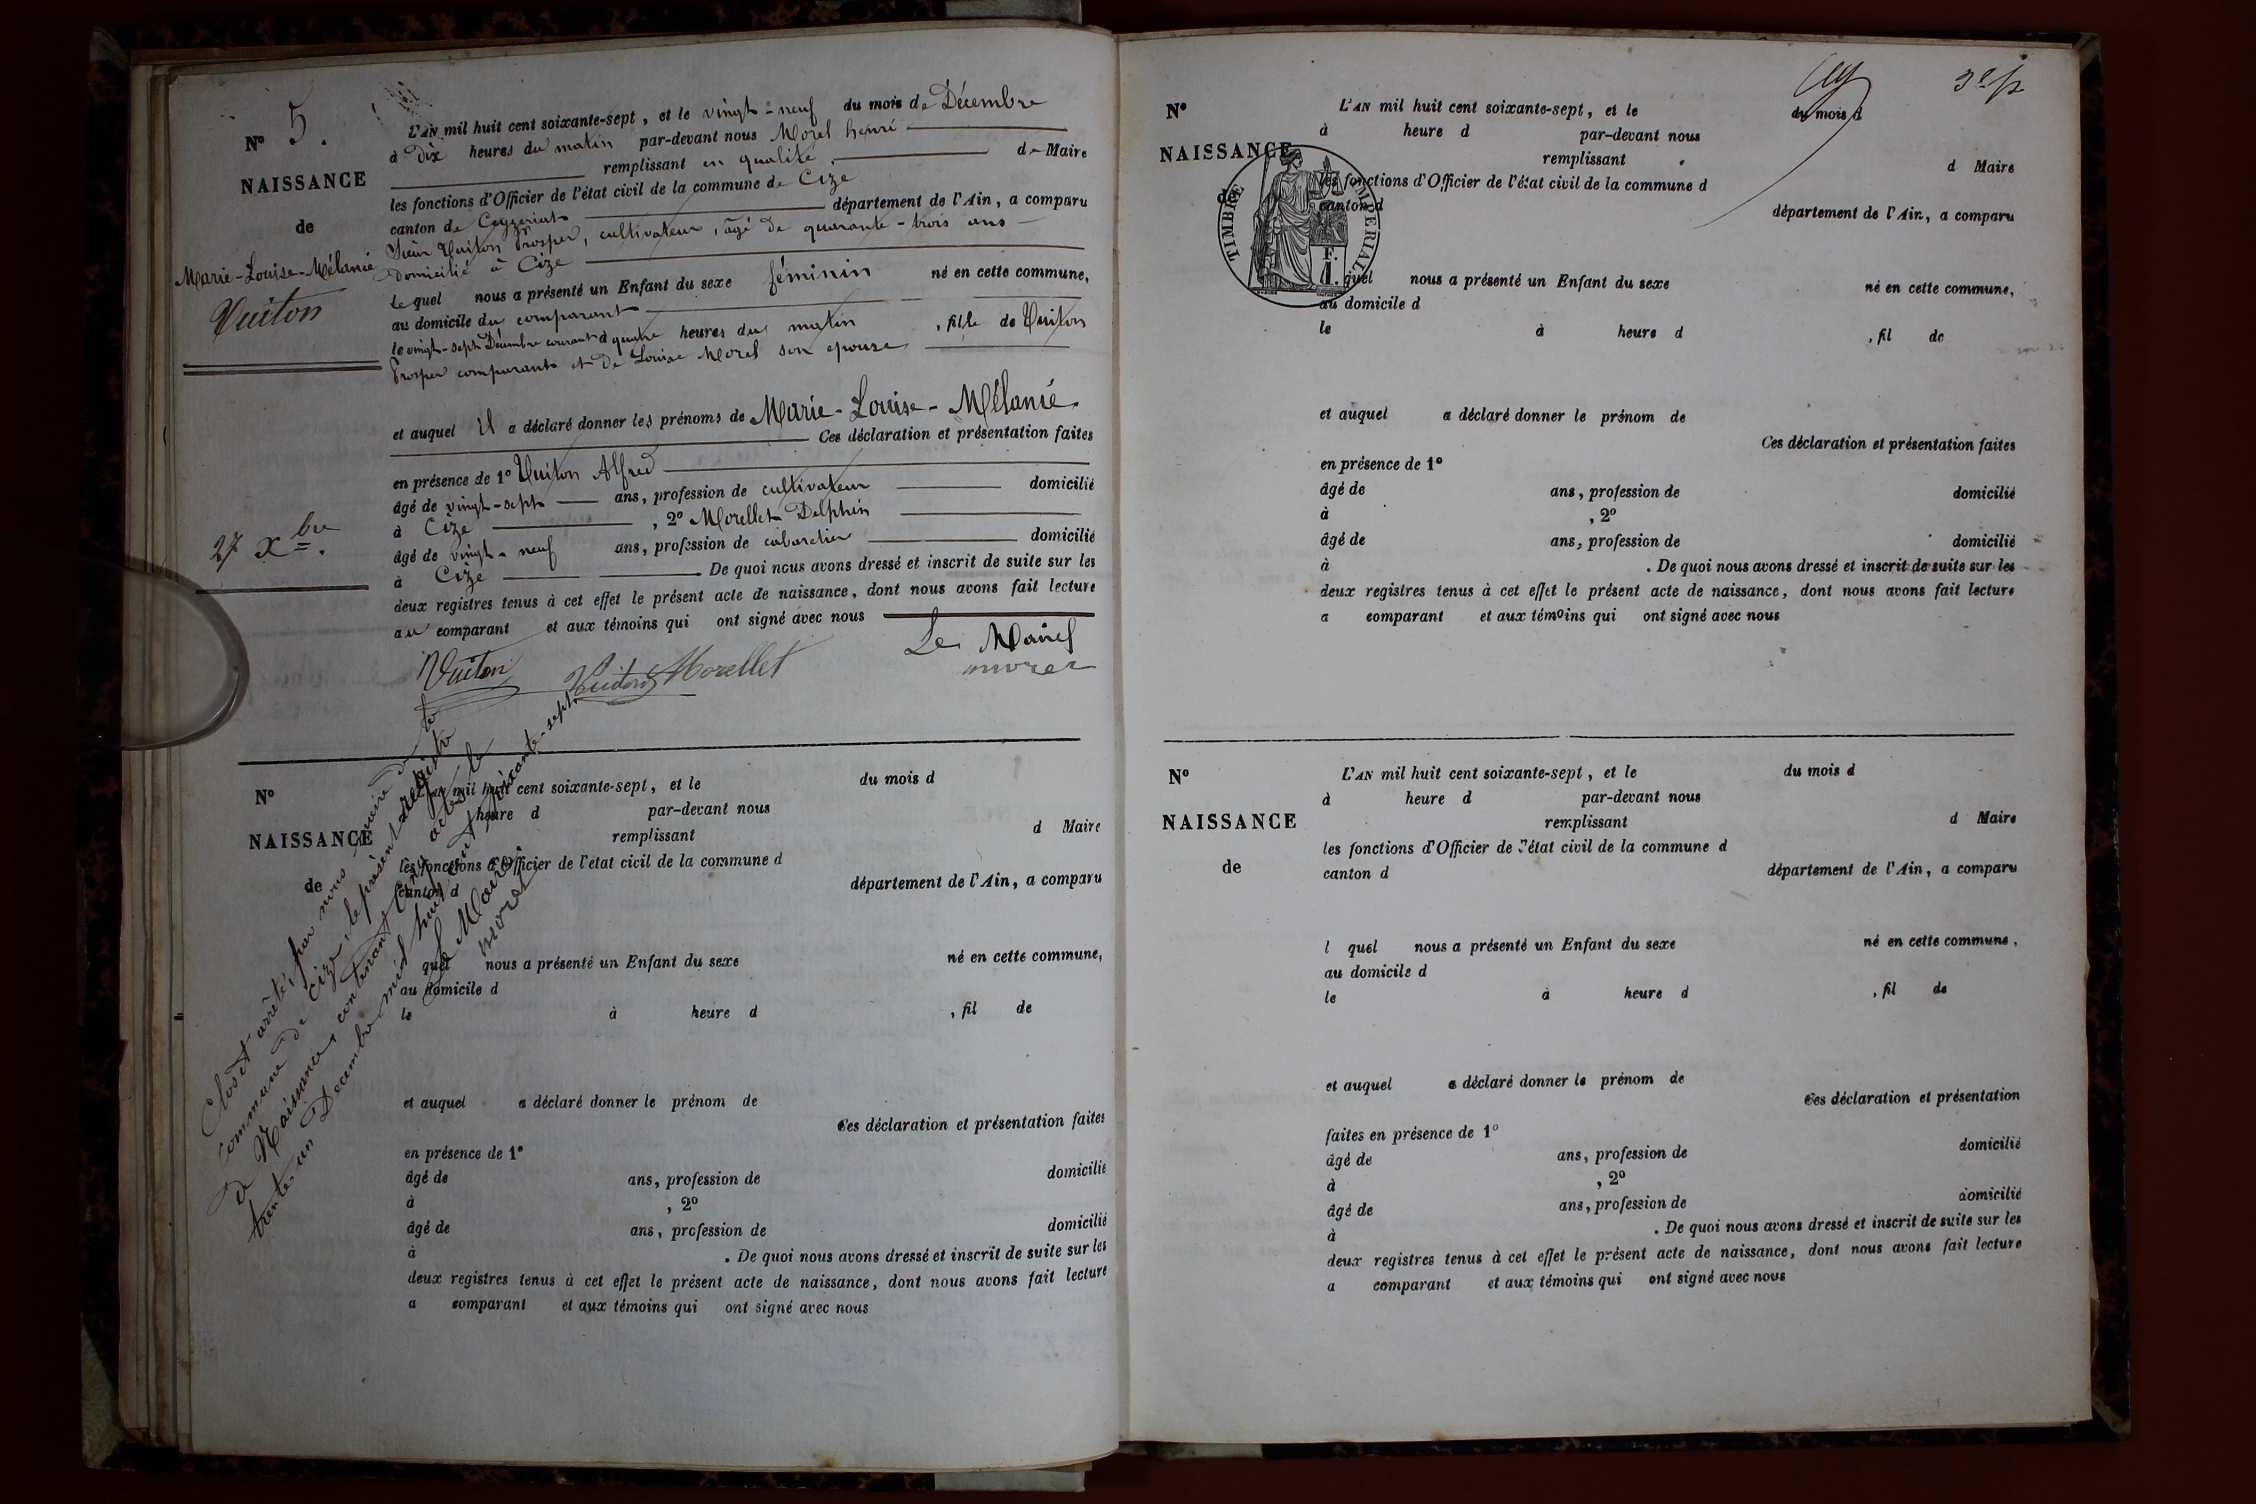 N° 5.
NAISSANCE
de
Marie-Louise-Mélanie
Vuiton
27 Xbre.
L'AN mil huit cent soixante-sept, et le vingt-neuf du mois de Décembre
à Dix heures du matin par-devant nous Morel henri
remplissant en qualité de Maire
les fonctions d'Officier de l'état civil de la commune de Cize
canton de Ceyzeriat département de l'Ain, a comparu
Sieur Vuiton Prosper, cultivateur, âgé de quarante-trois ans
Domicilié à Cize
lequel nous a présenté un Enfant du sexe féminin né en cette commune,
au domicile du comparant
le vingt-sept Décembre courant à quatre heures du matin, fille de Vuiton
Prosper comparant et de Louise Morel son epouse
et auquel il a déclaré donner les prénoms de Marie-Louise-Mélanie.
Ces déclaration et présentation faites
en présence de 1° Vuiton Alfred
âgé de vingt-sept ans, profession de cultivateur domicilié
à Cize, 2° Morellet Delphin
âgé de vingt-neuf ans, profession de cabaretier domicilié
à Cize. De quoi nous avons dressé et inscrit de suite sur les
deux registres tenus à cet effet le présent acte de naissance, dont nous avons fait lecture
au comparant et aux témoins qui ont signé avec nous
Le Maire
Vuiton Vuiton Morellet morel
Clos et arrêté, par nous maire de la
commune de Cize, le présent registre
de Naissances, contenant cinq actes le
trente-un Décembre mil huit cent soixante-sept
Le Maire
morel
N°
NAISSANCE
de
L'AN mil huit cent soixante-sept, et le du mois d
heure d par-devant nous
remplissant d Maire
les fonctions d'Officier de l'état civil de la commune d
canton d département de l'Ain, a comparu
quel nous a présenté un Enfant du sexe né en cette commune,
au domicile d
le à heure d , fil de
et auquel a déclaré donner le prénom de
Ces déclaration et présentation faites
en présence de 1°
âgé de ans, profession de domicilié
à , 2°
âgé de ans, profession de domicilié
à . De quoi nous avons dressé et inscrit de suite sur les
deux registres tenus à cet effet le présent acte de naissance, dont nous avons fait lecture
a comparant et aux témoins qui ont signé avec nous
N°
NAISSANCE
de
TIMBRE IMPERIAL
1 F.
L'AN mil huit cent soixante-sept, et le du mois d
à heure d par-devant nous
remplissant d Maire
les fonctions d'Officier de l'état civil de la commune d
canton d département de l'Ain, a comparu
l quel nous a présenté un Enfant du sexe né en cette commune,
au domicile d
le à heure d , fil de
et auquel a déclaré donner le prénom de
Ces déclaration et présentation faites
en présence de 1°
âgé de ans, profession de domicilié
à , 2°
âgé de ans, profession de domicilié
à . De quoi nous avons dressé et inscrit de suite sur les
deux registres tenus à cet effet le présent acte de naissance, dont nous avons fait lecture
a comparant et aux témoins qui ont signé avec nous
N°
NAISSANCE
de
L'AN mil huit cent soixante-sept, et le du mois d
à heure d par-devant nous
remplissant d Maire
les fonctions d'Officier de l'état civil de la commune d
canton d département de l'Ain, a comparu
l quel nous a présenté un Enfant du sexe né en cette commune,
au domicile d
le à heure d , fil de
et auquel a déclaré donner le prénom de
Ces déclaration et présentation
faites en présence de 1°
âgé de ans, profession de domicilié
à , 2°
âgé de ans, profession de domicilié
à . De quoi nous avons dressé et inscrit de suite sur les
deux registres tenus à cet effet le présent acte de naissance, dont nous avons fait lecture
a comparant et aux témoins qui ont signé avec nous